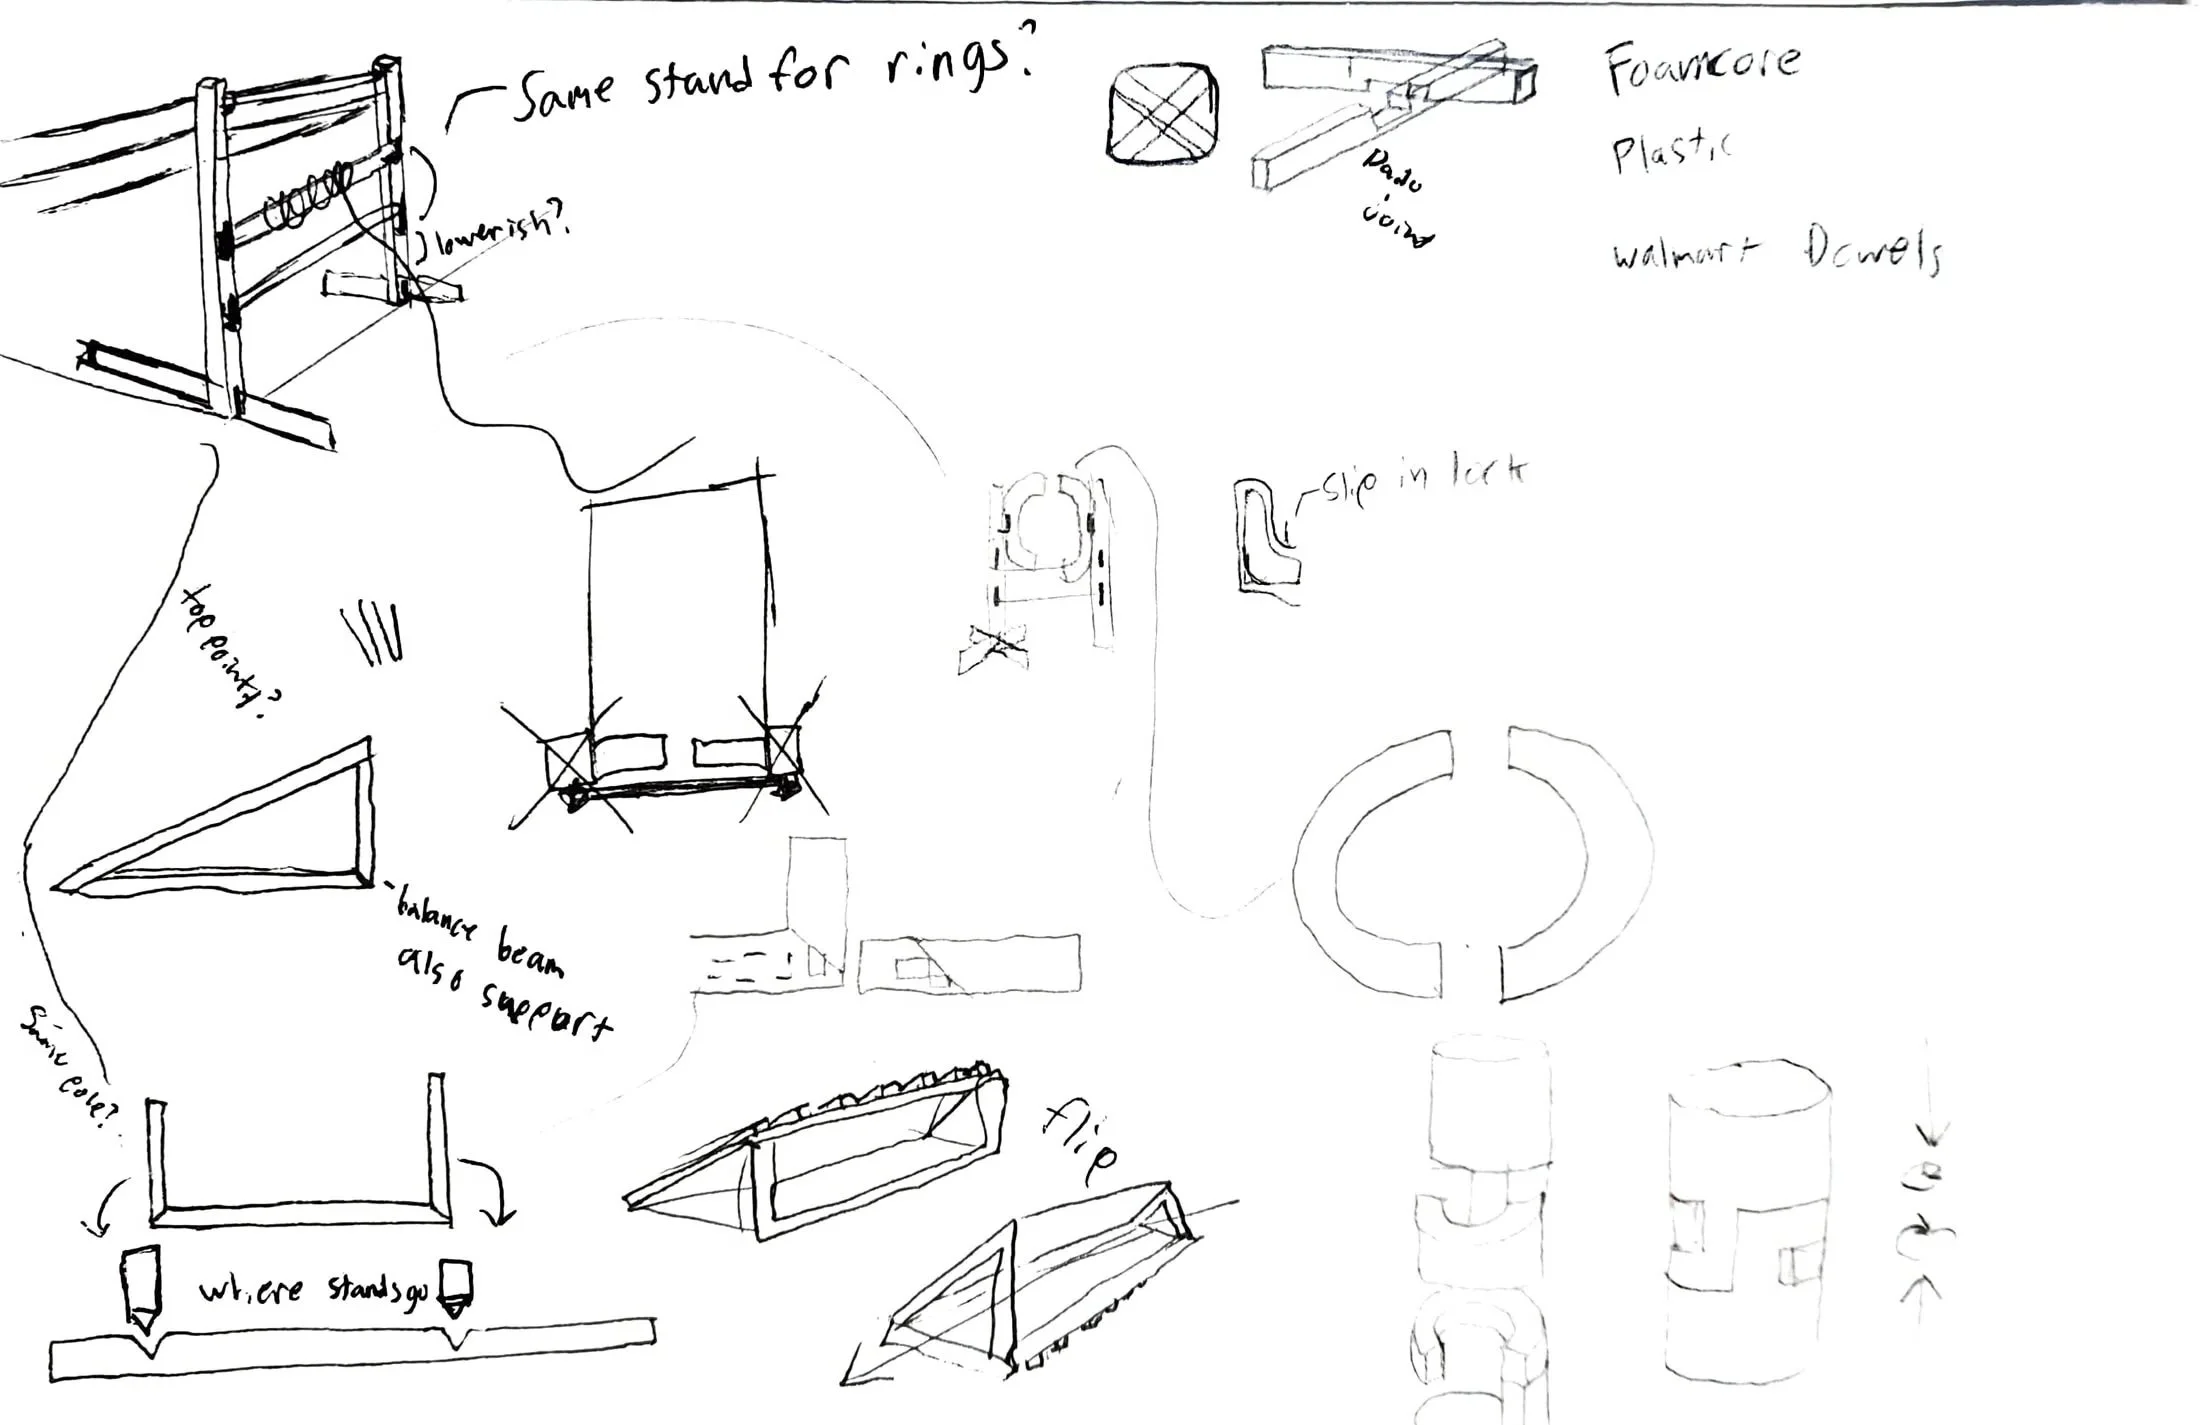 Same stand for rings?
Foamcore
Plastic
Walmart Dowels
Dado
Joint
lowerish?
slip in lock
top pointy?
balance beam
also support
Same
pole?
flip
where stands go